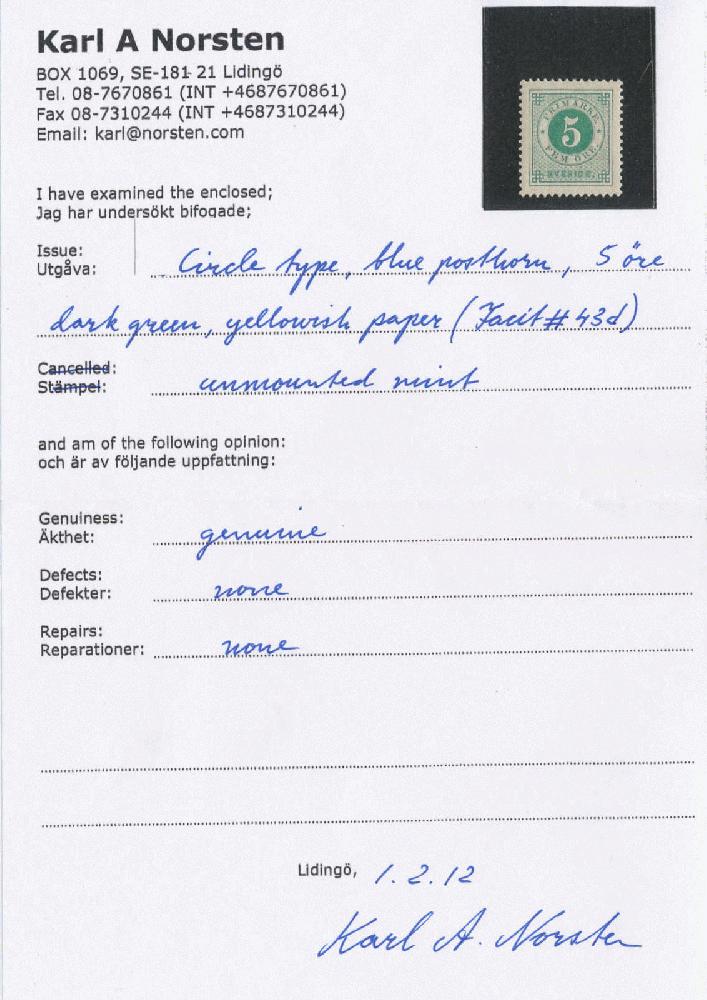 Karl A Norsten
BOX 1069, SE-181 21 Lidingö
Tel. 08-7670861 (INT +4687670861)
Fax 08-7310244 (INT +4687310244)
Email: karl@norsten.com
FRIMÄRKE
5
FEM ÖRE.
SVERIGE.
I have examined the enclosed;
Jag har undersökt bifogade;
Issue:
Utgåva: Circle type, blue posthorn, 5 öre
dark green, yellowish paper (Facit # 43d)
Cancelled:
Stämpel: unmounted mint
and am of the following opinion:
och är av följande uppfattning:
Genuiness:
Äkthet: genuine
Defects:
Defekter: none
Repairs:
Reparationer: none
Lidingö, 1.2.12
Karl A. Norsten